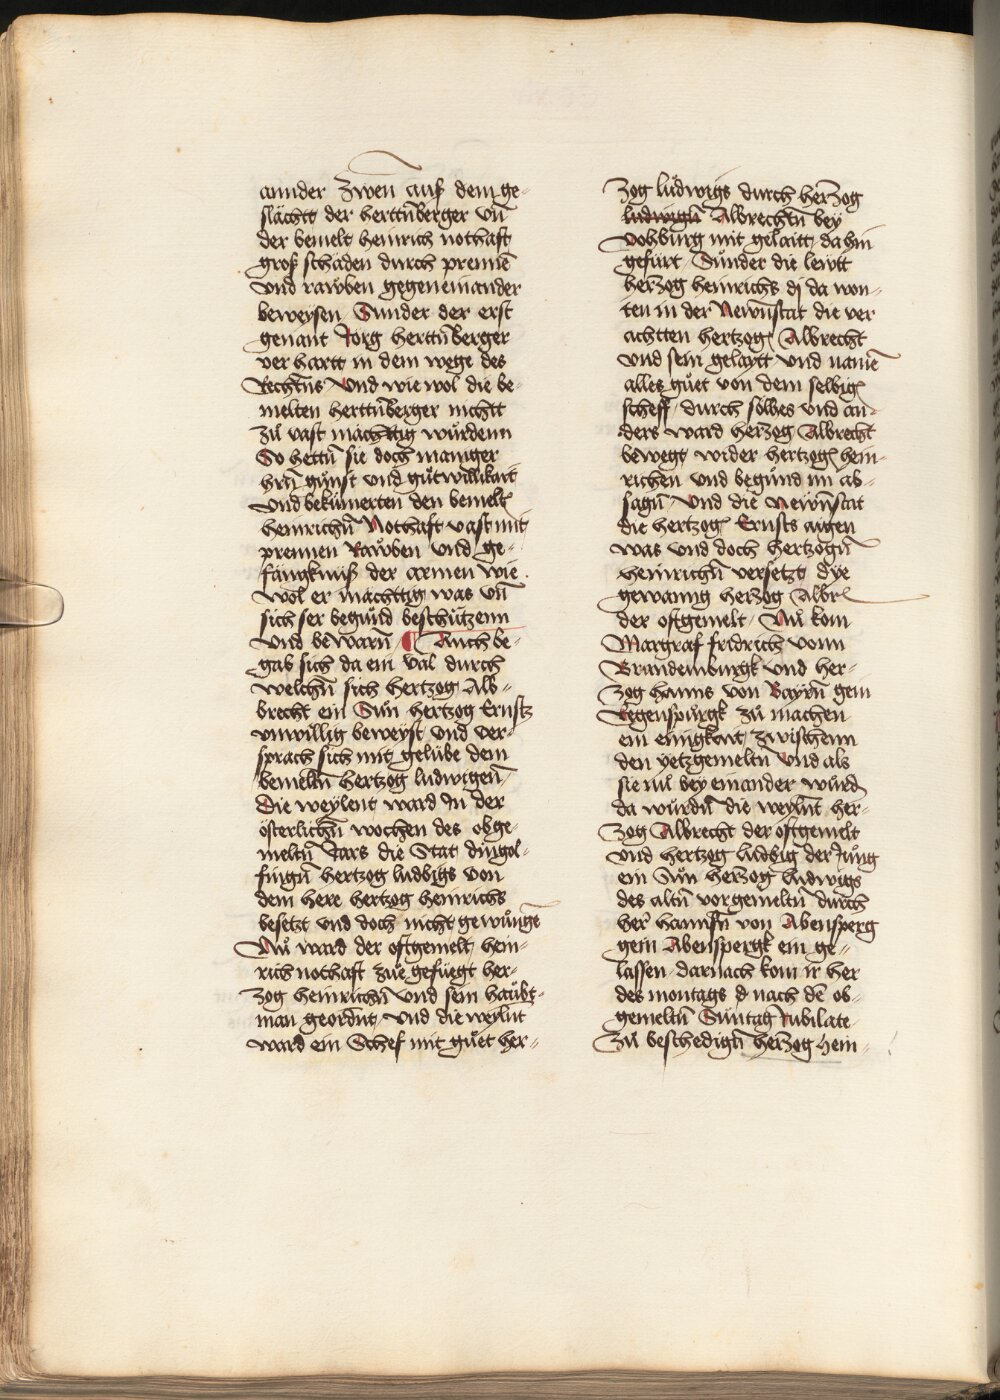 annder zwen auß dem ge-
slächtt der herttnberger vn̄
der bemelt heinrich nothaft
groß schaden durch prennē
vnd rawben gegeneinander
beweysen Sunder der erst
genant Jorg herttnberger
verhartt in dem wege des
Rechtens vnd wie wol die be-
melten herttnberger nichtt
zů vast mächttig wůrdenn
So hettn̄ sie doch maniger
hrn̄ gůnst vnd gůtwillikait
vnd bekůmerten den bemelt
heinrichn̄ Nothaft vast mit
prennen Rawben vnd ge-
fängknůß der armen wie
wol er mächttig was vn̄
sich ser begůnd beschützenn
vnd bewarn̄ ¶ Auch be-
gab sich da ein val durch
welchn̄ sich hertzog Alb-
brecht ein Sůn hertzog Ernstz
vnwillig beweyst vnd ver-
sprach sich mit gelübe dem
bemeltn̄ hertzog ludwigen
Die weylent ward In der
osterlichn̄ wochen des obge-
meltn̄ Jars die Stat dingol-
fingn̄ hertzog ludbigs von
dem here hertzog heinrichs
besetzt vnd doch nicht gewunnē
Nů ward der oftgemelt hein-
rich nothaft zůe gefüegt her-
zog heinrichn̄ vnd sein haůbt-
man geordnt vnd die weylnt
ward ein Schef mit gůet her-
zog ludwigs durch herzog
ludwign̄ Albrechtn̄ bey
vohburg mit gelaitt dahin
gefürt Sůnder die lewtt
herzog heinrichs dj da won-
ten in der Newnstat die ver
achtten hertzog Albrecht
vnd sein gelaytt vnd namē
alles gůet von dem selbig
scheff durch sölhes vnd an-
ders ward herzog Albrecht
bewegt wider hertzog hein-
richen vnd begůnd im ab-
sagn̄ vnd die Newnstat
die hertzog Ernsts aigen
was vnd doch hertzogn̄
heinrichn̄ versetzt dye
gewanng herzog Albr
der oftgemelt Nů kom
Margraf fridrich vonn
Brandemburgk vnd her-
zog hanns von Bayrn̄ gein
Regenspůrgk zů machen
ein einigkait zwischenn
den yetzgemeltn̄ vnd als
sie nů bey einander wůrd
da wůrdn̄ die weylnt her-
zog Albrecht der oftgemelt
vnd hertzog ludbig der Jung
ein Sůn herzog ludwigs
des altn̄ vorgemeltn̄ durch
her hannsn̄ von Abensperg
gein Abenspergk ein ge-
lassen darnach kom ir her
des montags d nach dē ob-
gemeltn̄ Suntag Jubilate
Zů beschedign̄ herzog hein-